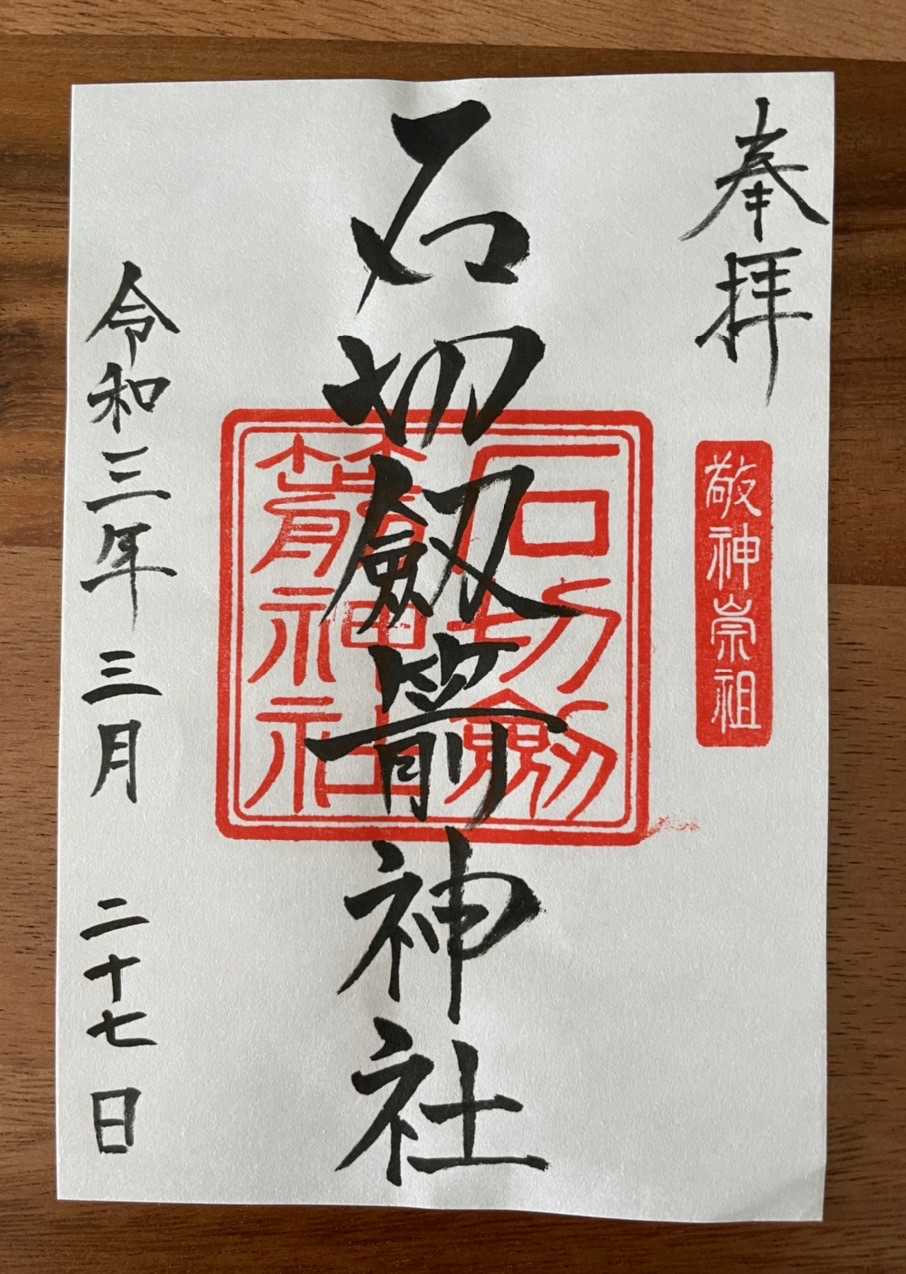 奉拝
敬神崇祖
石切劔箭神社
石切劔
箭神社
令和三年三月二十七日